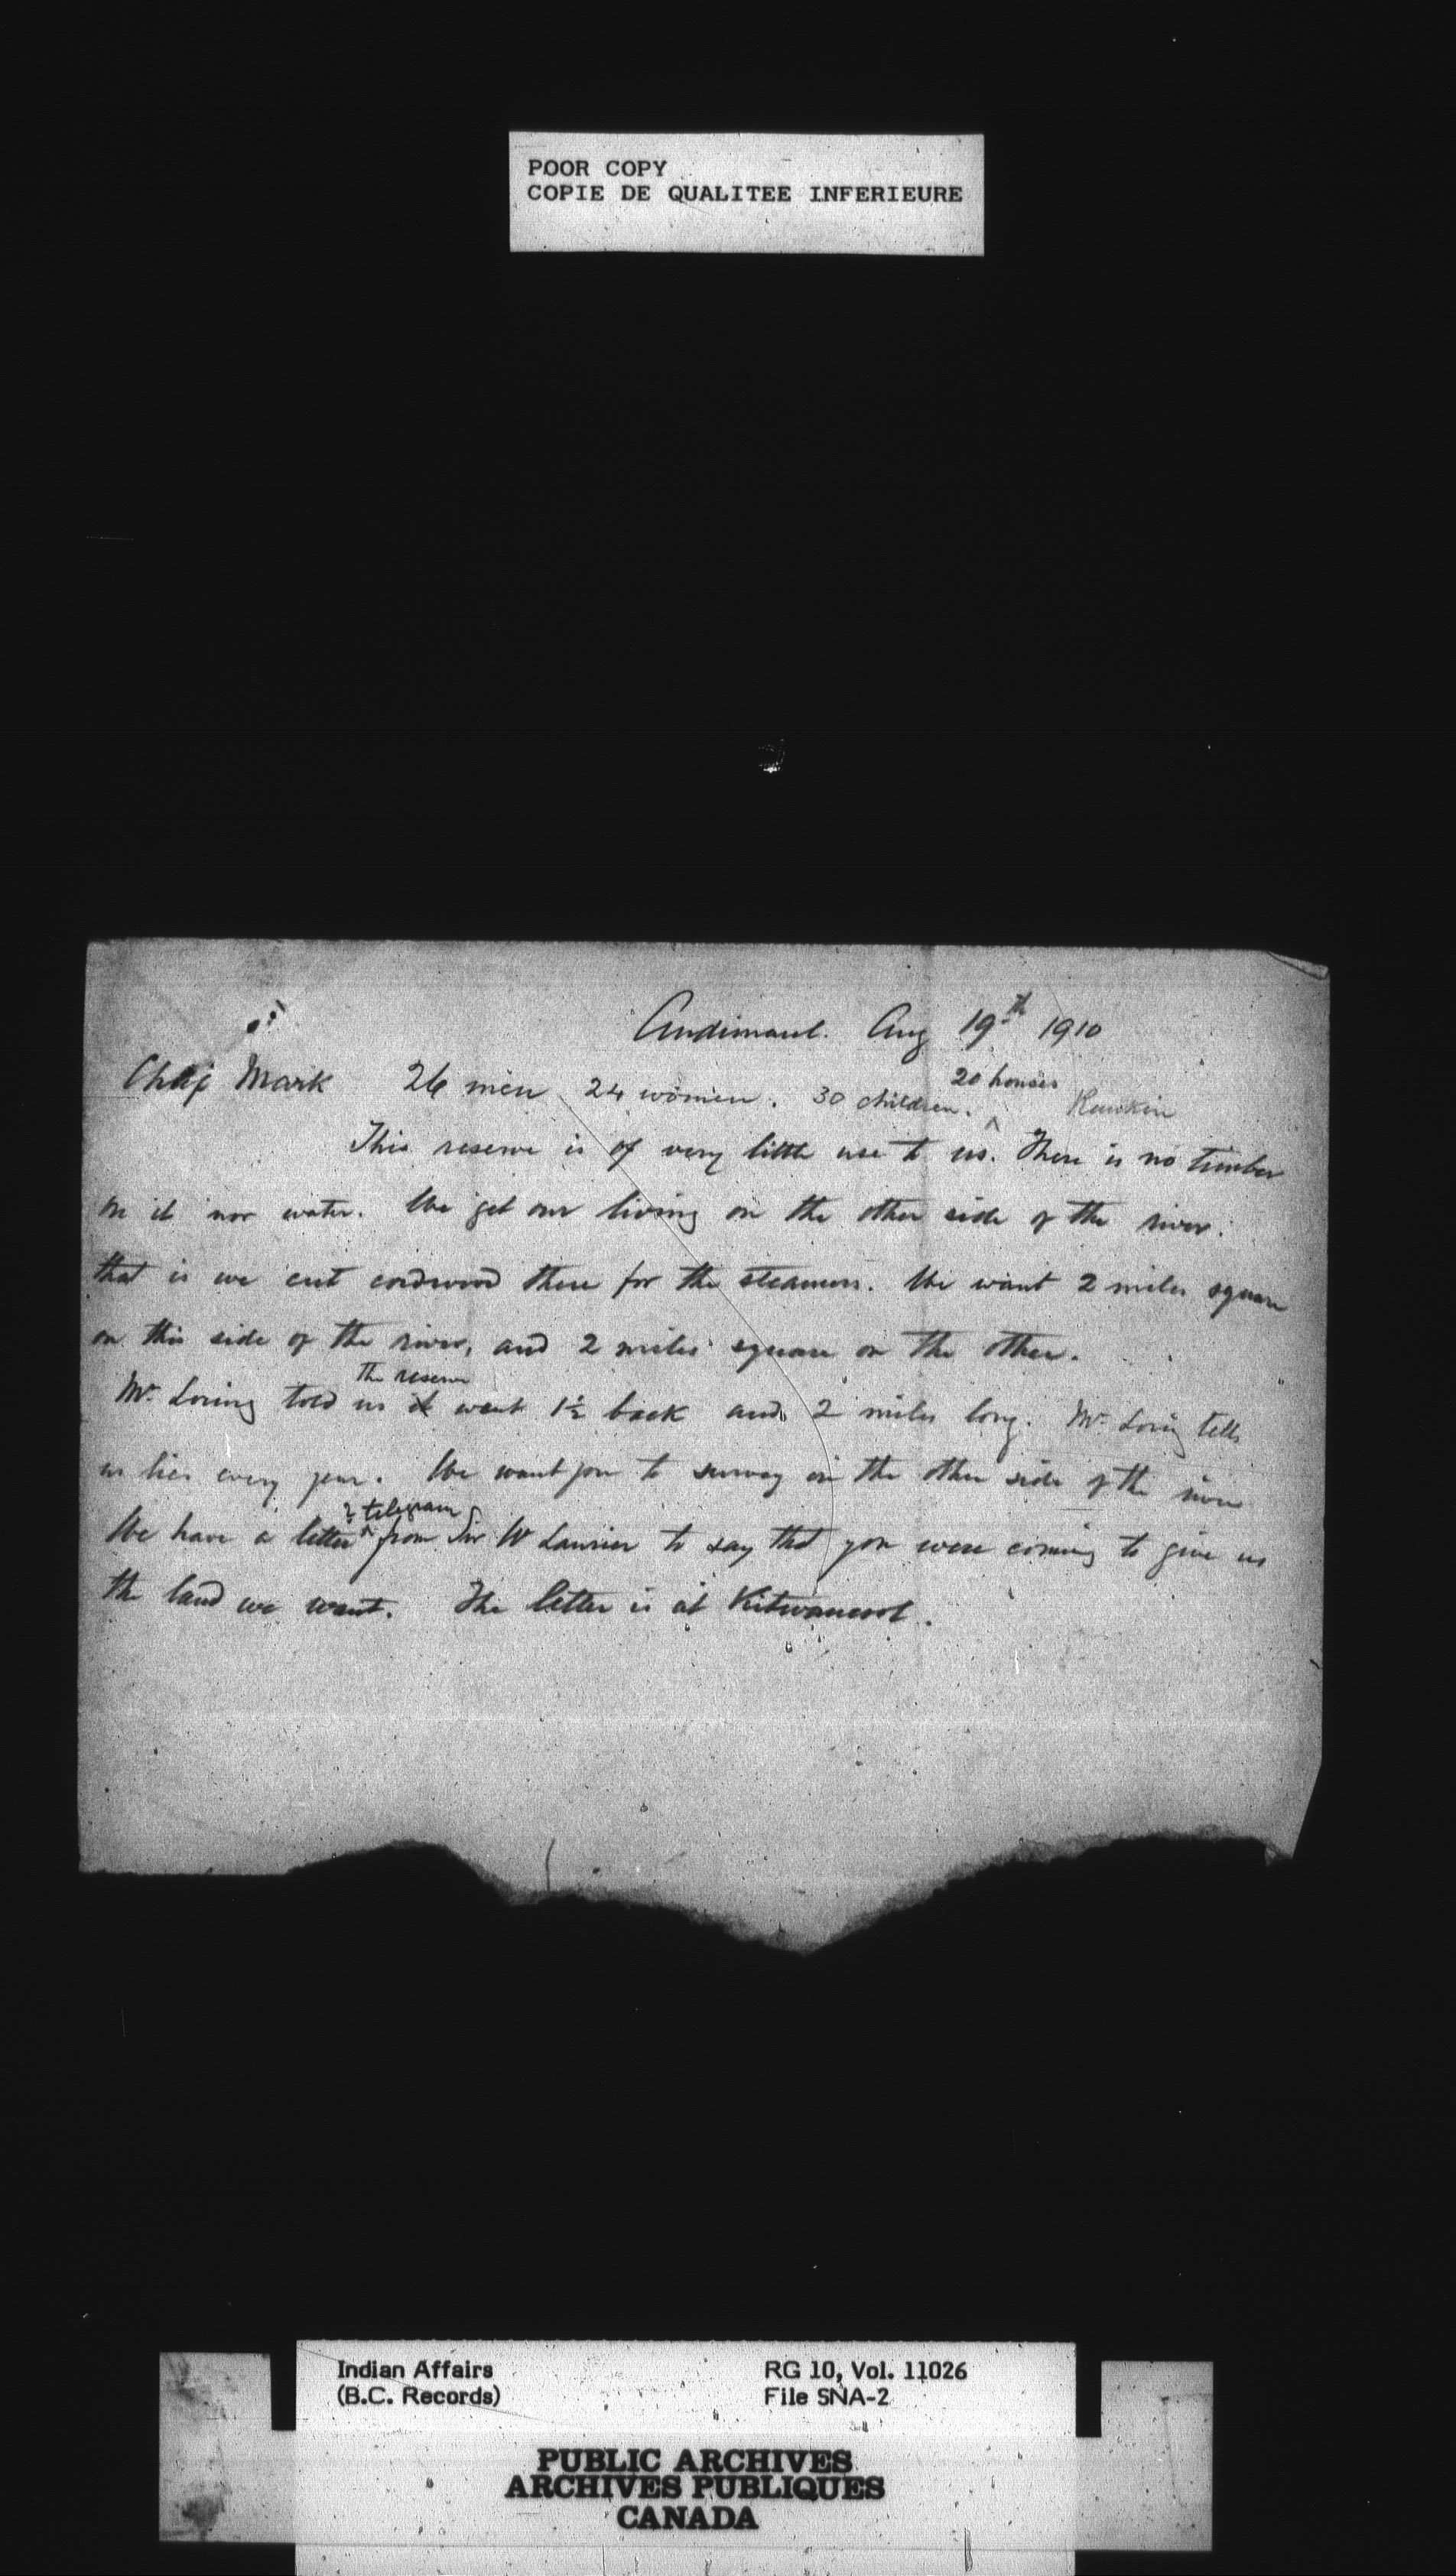 POOR COPY
COPIE DE QUALITEE INFERIEURE
Andimaul. Aug 19th 1910
Chief Mark 26 men 24 women. 30 children. 20 houses
This reserve is of very little use to us. There is no timber
on it nor water. We get our living on the other side of the river.
that is we cut cordwood there for the steamers. We want 2 miles square
on this side of the river, and 2 miles square on the other.
the reserve
Mr Loring told us it went 1½ back and 2 miles long. Mr Loring tells
us lies every year. We want you to survey on the other side of the river
? telegram
We have a letter from Sir W Laurier to say that you were coming to give us
the land we want. The letter is at Kitwancool.
Indian Affairs
(B.C. Records)
RG 10, Vol. 11026
File SNA-2
PUBLIC ARCHIVES
ARCHIVES PUBLIQUES
CANADA